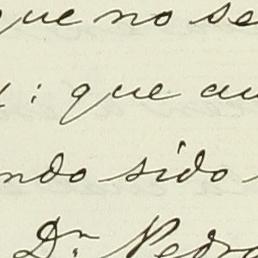 que no se
: que au
ndo sido
Dn Pedro